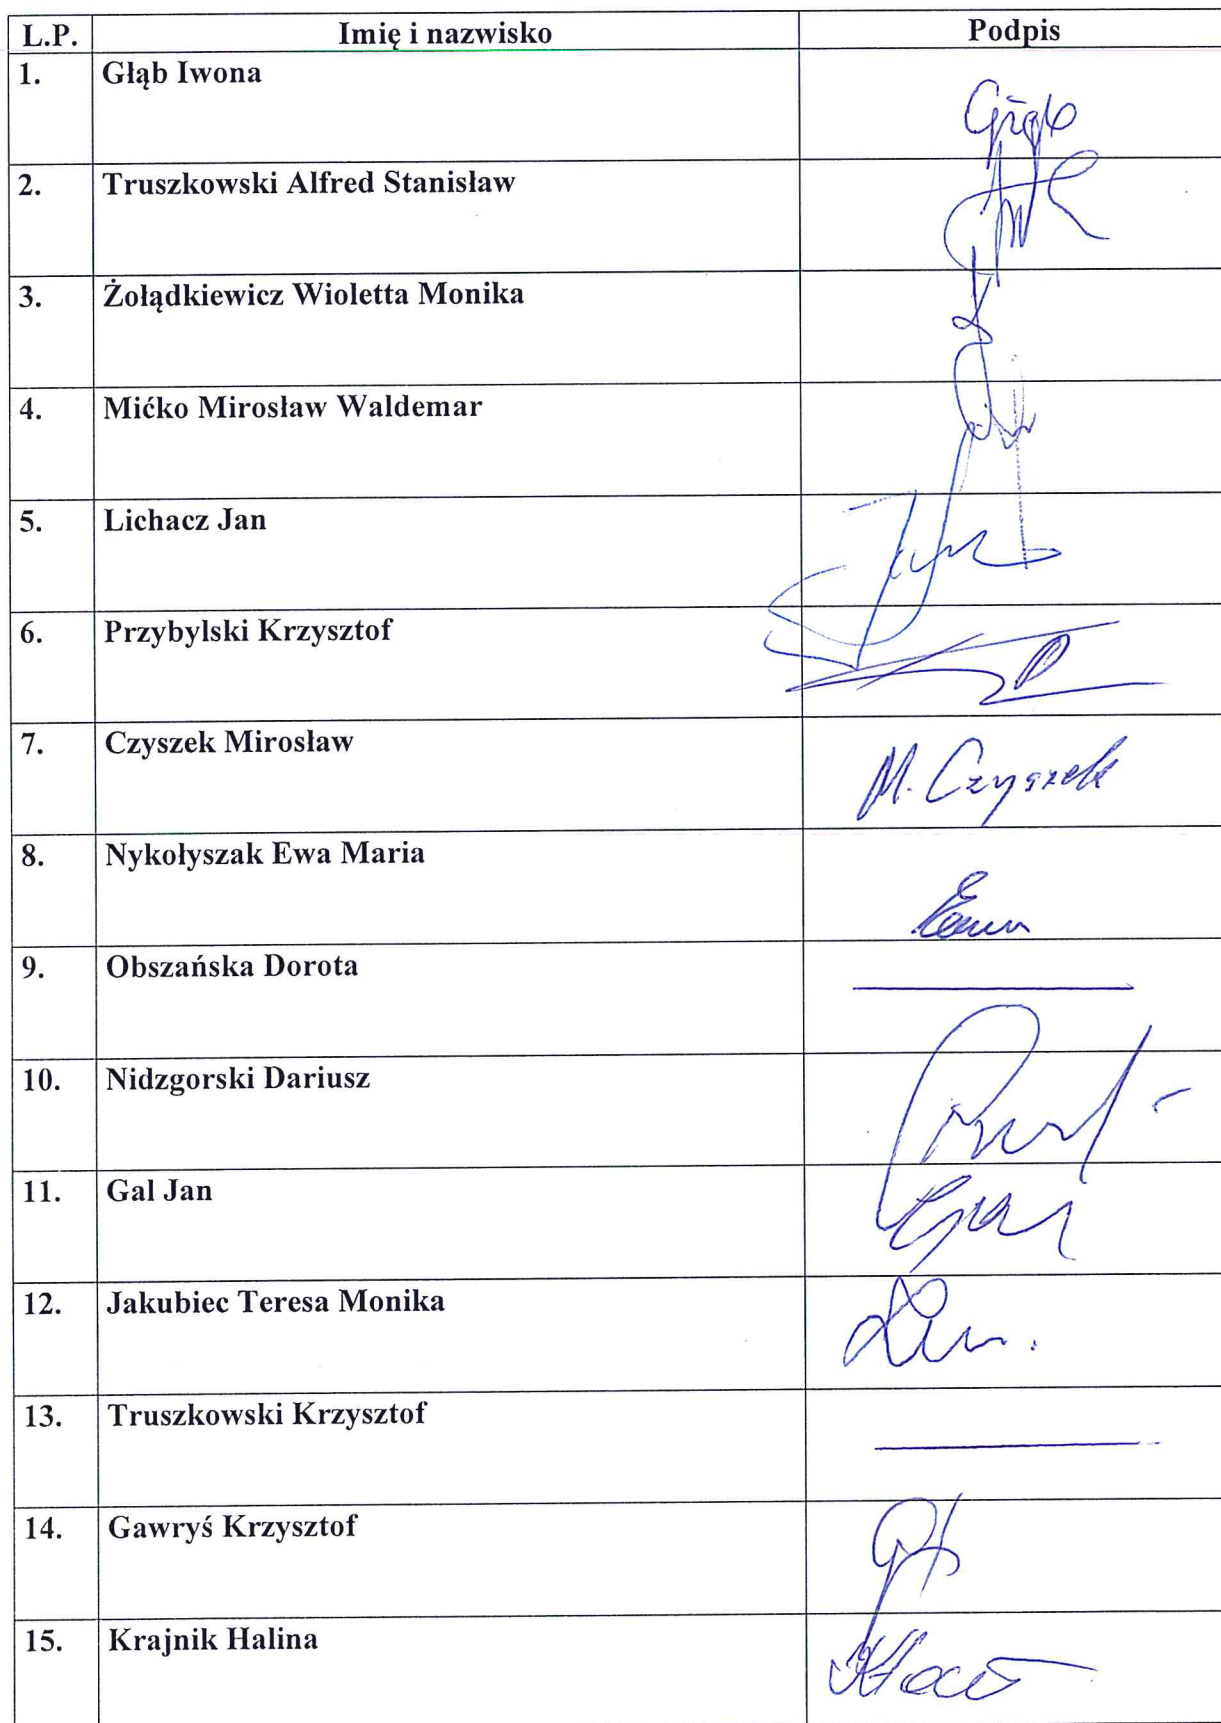 L.P. Imię i nazwisko Podpis
1. Głąb Iwona
Głąb
2. Truszkowski Alfred Stanisław
3. Żołądkiewicz Wioletta Monika
4. Mićko Mirosław Waldemar
5. Lichacz Jan
6. Przybylski Krzysztof
7. Czyszek Mirosław
M. Czyszek
8. Nykołyszak Ewa Maria
9. Obszańska Dorota
10. Nidzgorski Dariusz
11. Gal Jan
12. Jakubiec Teresa Monika
13. Truszkowski Krzysztof
14. Gawryś Krzysztof
15. Krajnik Halina